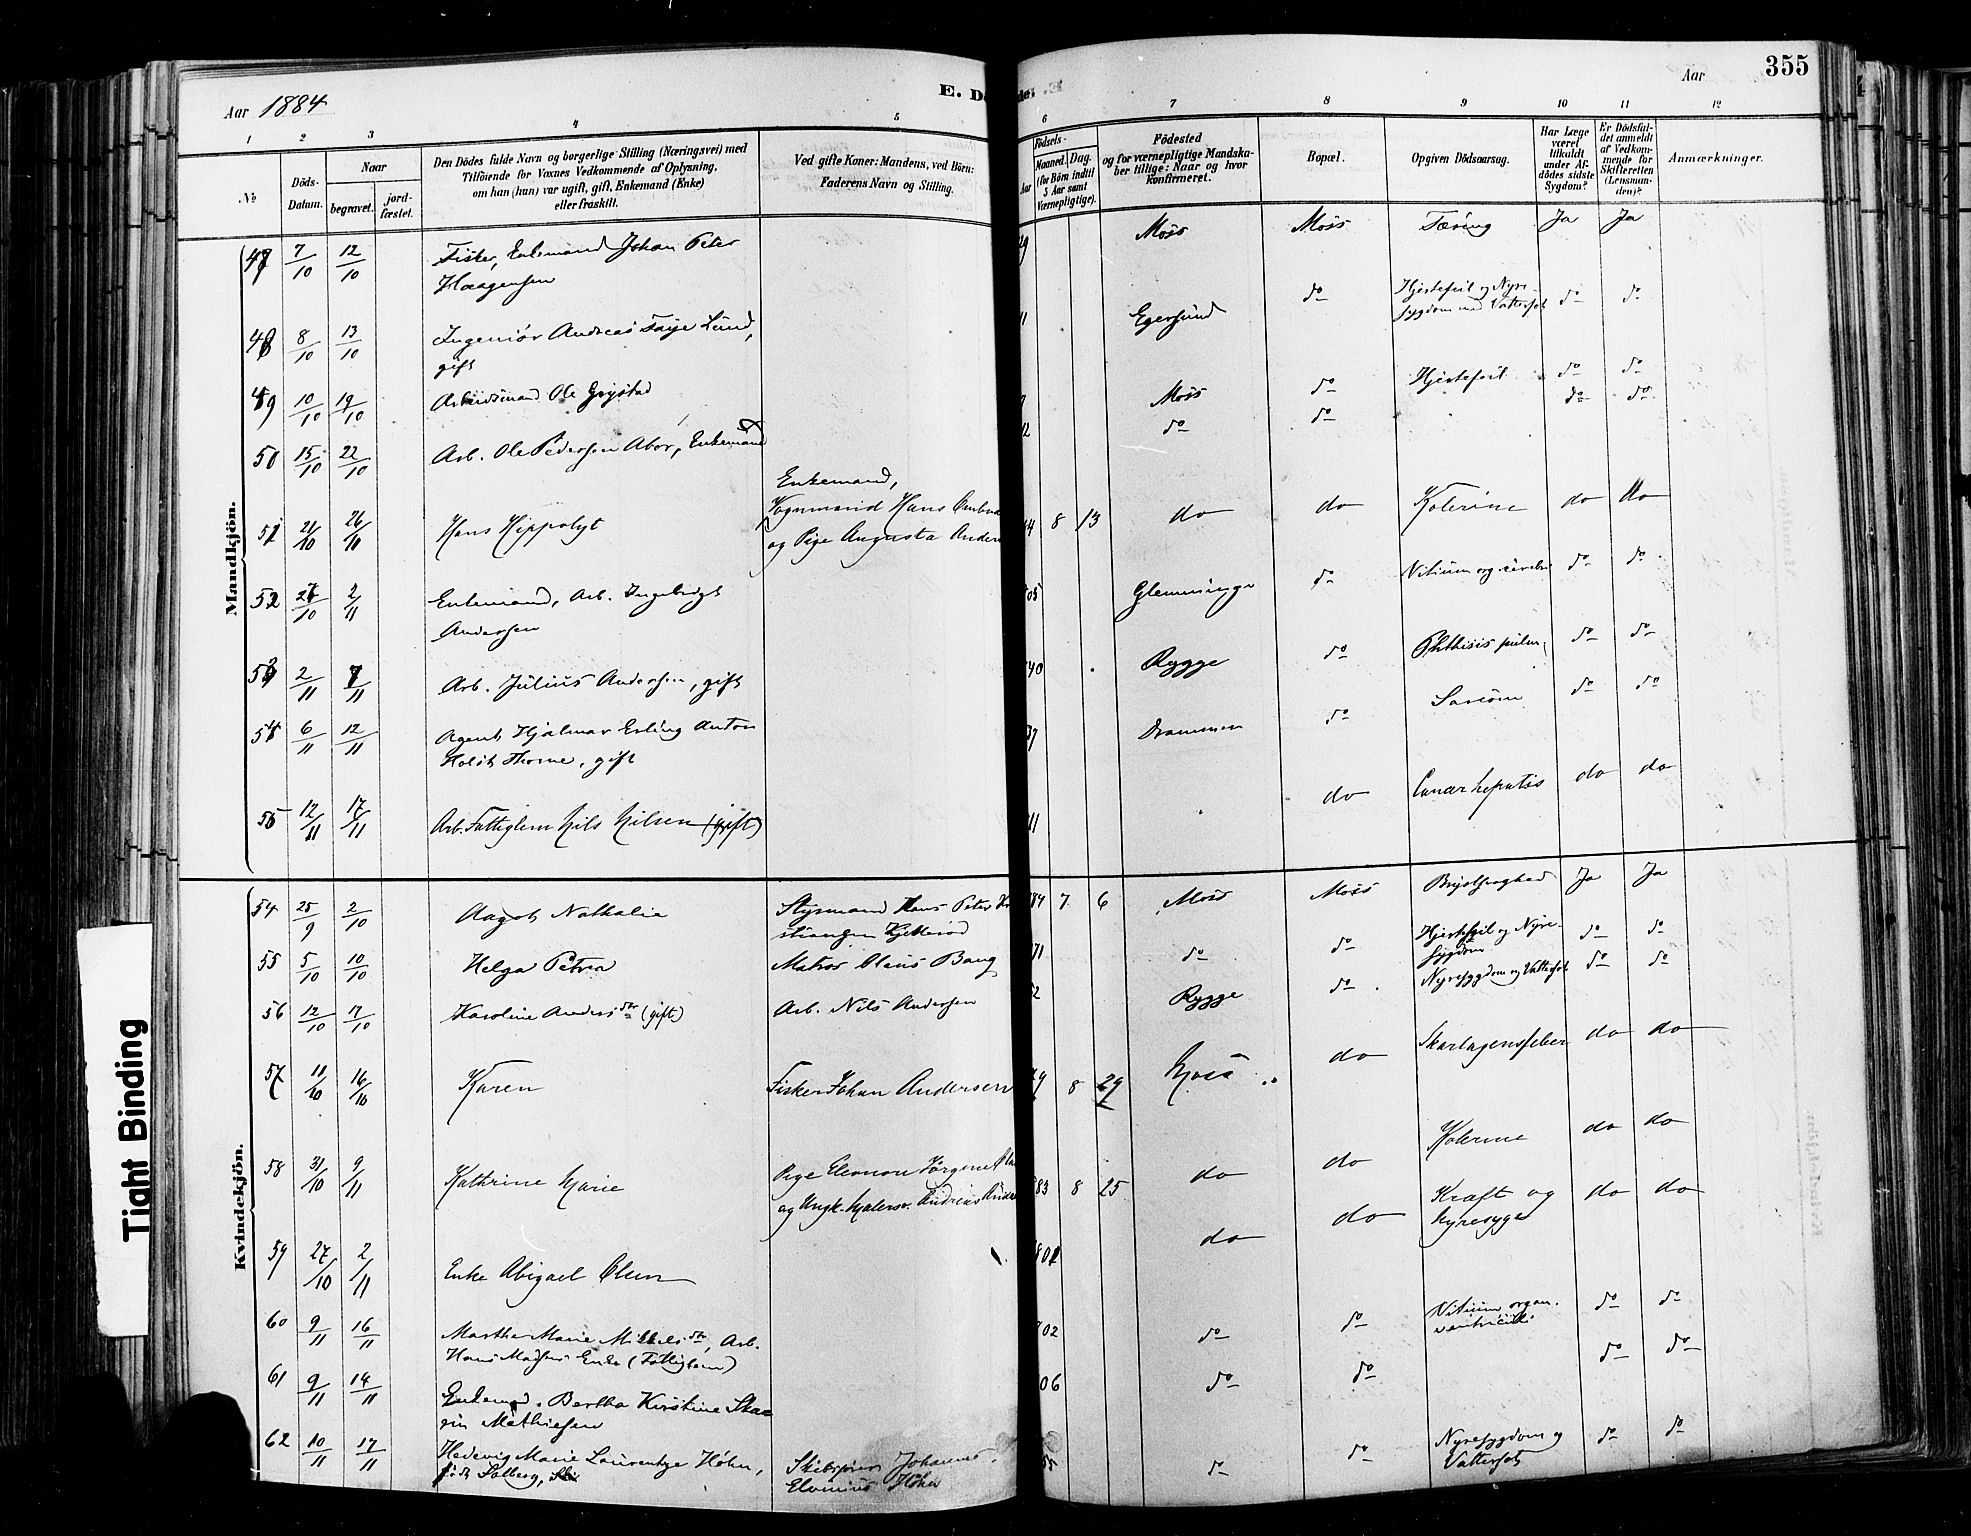 Aar 1884
E. Dö
de. E
Aar
355
1 2 3 4 5 6 7 8 9 10 11 12
No
Döds-
Datum.
Naar
begravet.
jord-
fæstet.
Den Dödes fulde Navn og borgerlige Stilling (Næringsvei) med
Tilföiende for Voxnes Vedkommende af Oplysning,
om han (hun) var ugift, gift, Enkemand (Enke)
eller fraskilt.
Ved gifte Koner: Mandens, ved Börn:
Faderens Navn og Stilling.
Födsels-
Aar
Maaned. Dag.
(for Börn indtil
5 Aar samt
Værnepligtige).
Födested
og for værnepligtige Mandska-
ber tillige: Naar og hvor
Konfirmeret.
Bopæl.
Opgiven Dödsaarsag.
Har Læge
været
tilkaldt
under Af-
dödes sidste
Sygdom?
Er Dödsfal-
det anmeldt
af Vedkom-
mende for
Skifteretten
(Lensman-
den)?
Anmærkninger.
Mandkjön.
47 7/10 12/10 Fisker, Enkemand Johan Peter
Haagensen
29 Moss Moss Tæring Ja Ja
48 8/10 13/10 Ingeniör Andreas Faye Lund,
gift
11 Egersund do Hjertefeil og Nyre-
sygdom med Vattersot do do
49 10/10 19/10 Arbeidsmand Ole Grystad
Moss do Hjertefeil do do
50 15/10 22/10 Arb. Ole Pedersen Abor, Enkemand
12 do do do do
51 21/10 26/10 Hans Hippolyt
Enkemand,
Vognmand Hans
og Pige Augusta Ander
84 8 13 do do Kolerine do do
52 27/10 2/11 Enkemand, Arb. Ingebrigt
Andersen
05 Glemminge do Vitium org. cerebri do do
53 2/11 7/11 Arb. Julius Andersen, gift
40 Rygge do Phthisis pulm. do do
54 6/11 12/11 Agent Hjalmar Erling Anton
Holst Thorne, gift
37 Drammen do Sarcom do do
55 12/11 17/11 Arb. Fattiglem Nils Nilsen (gift)
11 do Cancer hepatis do do
Kvindekjön.
54 25/9 2/10 Aagot Nathalie
Styrmand Hans Peter Kri
stiansen Kjetterød
84 7 6 Moss Moss Brystsvaghed Ja Ja
55 5/10 10/10 Helga Petrea
Matros Olaus Bang
71 do do Hjertefeil og Nyre-
sygdom do do
56 12/10 17/10 Karoline Andersdtr (gift)
Arb. Nils Andersen
2 Rygge do Nyresygdom og Vattersot do do
57 11/10 16/10 Karen
Fisker Johan Andersen
79 8 29 Moss do Skarlagensfeber do do
58 31/10 9/11 Kathrine Marie
Pige Eleonore Jørgine
og Ungk. Malersv. Andreas Ander
83 8 25 do do Kolerine do do
59 27/10 2/11 Enke Abigael Olsen
801 do do Kraft og
Nyresyge do do
60 9/11 16/11 Marthe Marie Mikkelsdtr, Arb.
Hans Madsens Enke (Fattiglem)
02 do do Vitium organ.
ventriculi do do
61 9/11 14/11 Enkemad. Bertha Kirstine Skaa
rin Mathiesen
06 do do do do
62 10/11 17/11 Hedevig Marie Laurentze Høhn,
født Solberg,
Skibsfører Johannes
Elonius Høhn
55 do do Nyresygdom og
Vattersot do do
Tight Binding